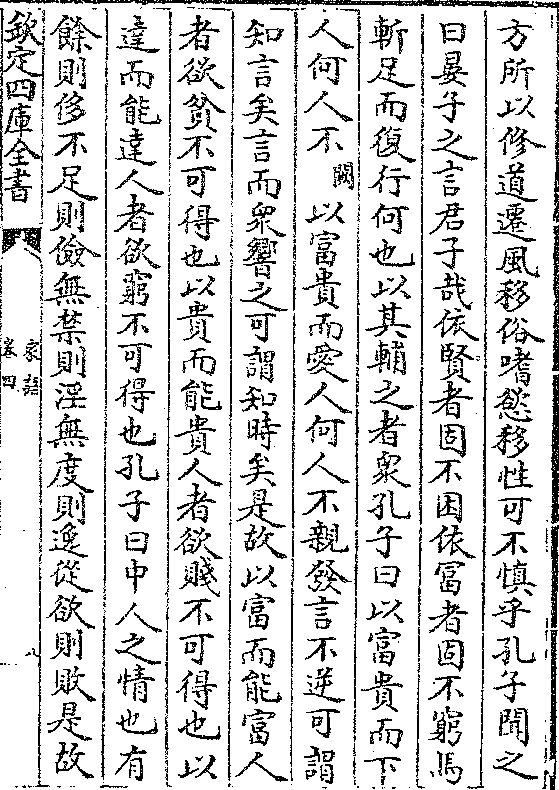 方所以修道遷風移俗嗜慾移性可不慎乎孔子聞之
曰晏子之言君子哉依賢者固不困依富者固不窮馬
斬足而復行何也以其輔之者衆孔子曰以富貴而下
人何人不闕以富貴而愛人何人不親發言不逆可謂
知言矣言而衆響之可謂知時矣是故以富而能富人
者欲貧不可得也以貴而能貴人者欲賤不可得也以
達而能達人者欲窮不可得也孔子曰中人之情也有
餘則侈不足則儉無禁則淫無度則逸從欲則敗是故
欽定四庫全書
家語
卷四
八